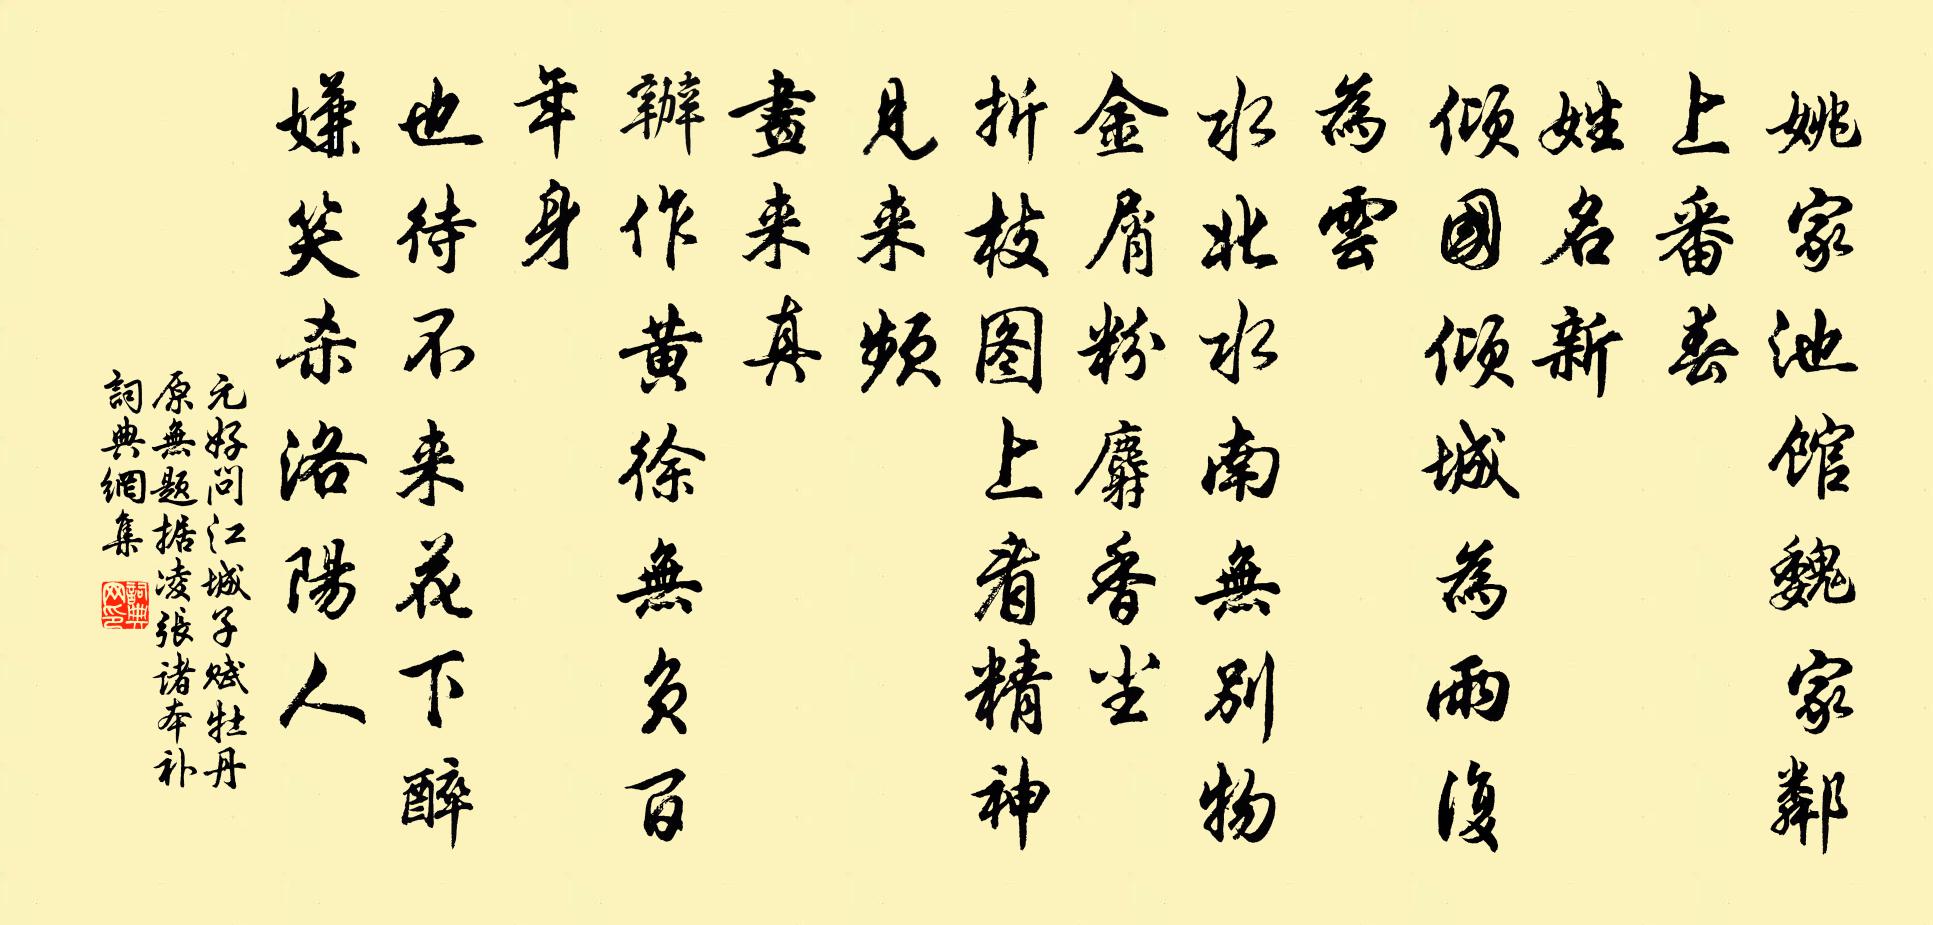 姚家池馆魏家鄰
上番春
姓名新
傾國傾城為雨復
為雲
水北水南無別物
金屑粉麝香尘
折枝图上看精神
見来頻
畫来真
辦作黄徐無负百
年身
也待不来花下醉
嫌笑杀洛陽人
元好问江城子赋牡丹
原無题据凌張诸本补
詞典網集
詞典網印